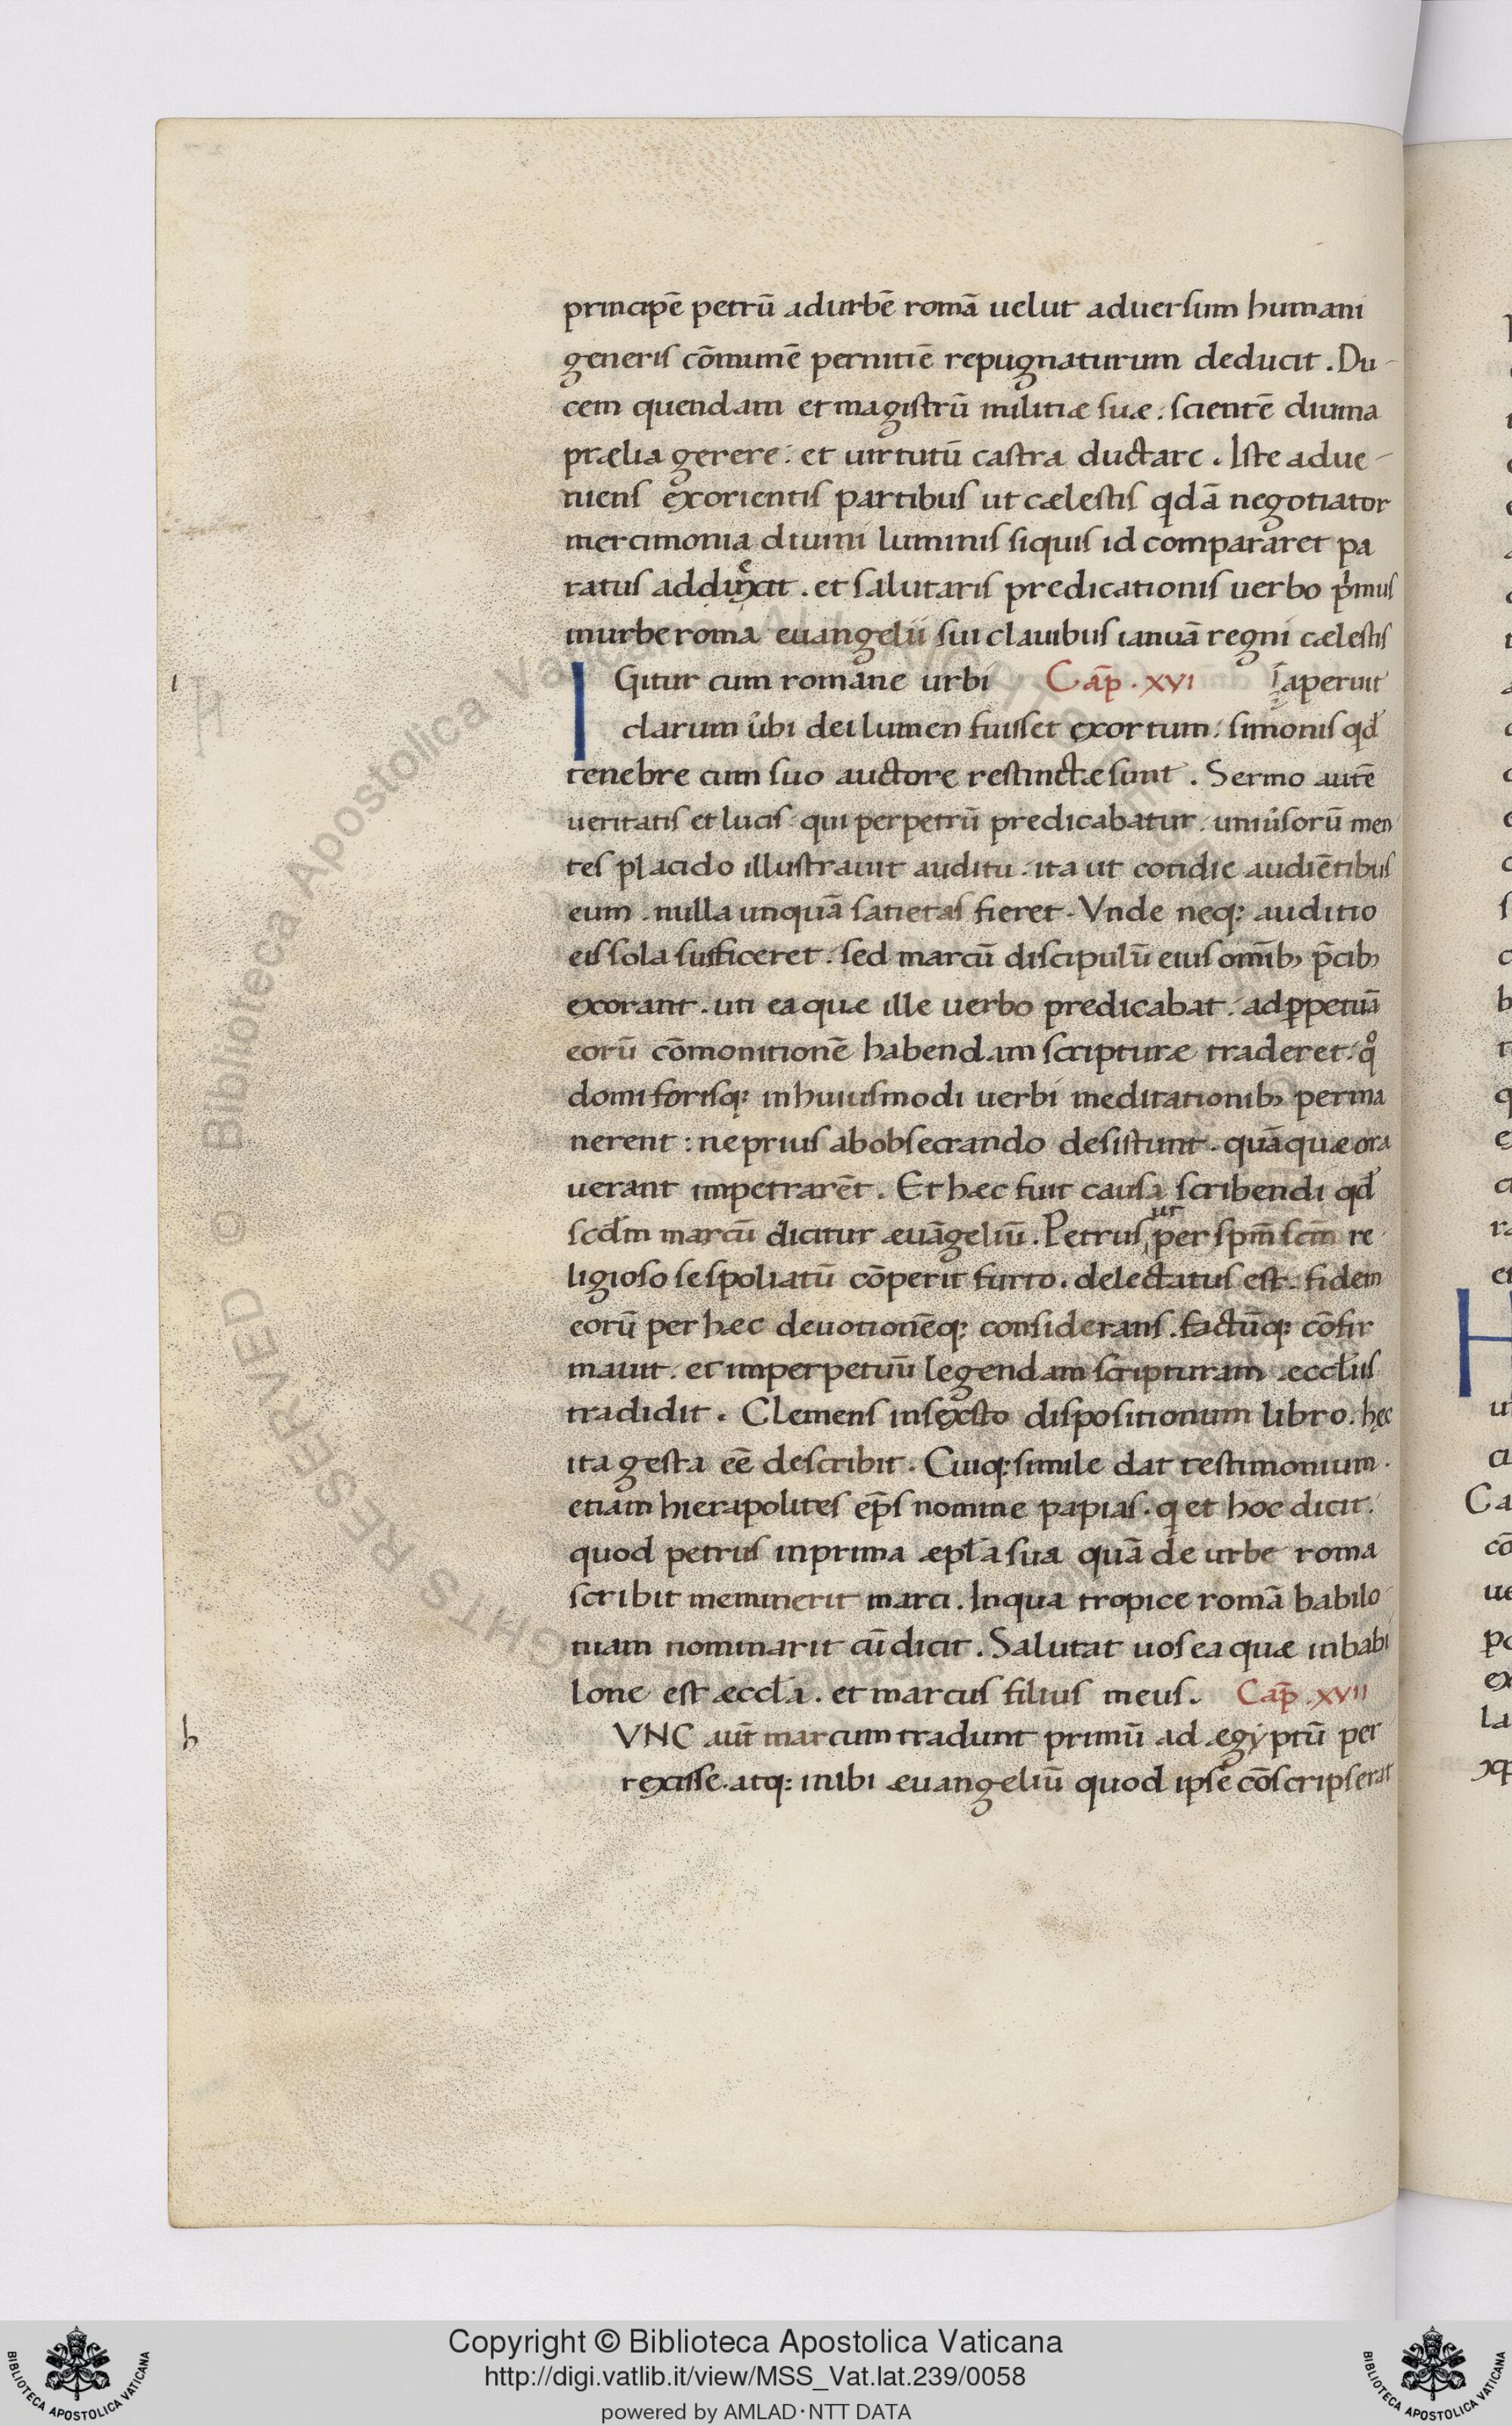 principē petrū adurbē romā uelut aduersum humani
generis cōmunē pernitiē repugnaturum deducit . Du-
cem quendam et magistrū militiæ suæ : scientē diuina
prælia gerere : et uirtutū castra ductare . Iste adue-
niens exorientis partibus ut cælestis qdā negotiator
mercimonia diuini luminis siquis id compararet pa
ratus adduxit . et salutaris predicationis uerbo pⁱmus
inurbe roma euangelii sui clauibus ianuā regni cælestis
IGitur cum romane urbi Cap̄ . XVI aperuit
clarum ubi dei lumen fuisset exortum : simonis qd̄
tenebre cum suo auctore restinctæ sunt . Sermo autē
ueritatis et lucis qui per petrū predicabatur . uniu̓sorū men
tes placido illustrauit auditu . ita ut cotidie audiētibus
eum . nulla unquā satietas fieret . Vnde neq: auditio
eis sola sufficeret . sed marcū discipulū eius omīb; p̄cib;
exorant . uti ea quæ ille uerbo predicabat . ad ꝑpetuā
eorū cōmonitionē habendam scripturæ traderet . qͦ
domi forisq: inhuiusmodi uerbi meditationib; perma
nerent : ne prius ab obsecrando desistunt . quā quæ ora
uerant impetrarēt . Et hæc fuit causa scribendi qd̄
scd̄m marcū dicitur æuāgeliū . Petrus ut per spm̄ scm̄ re
ligioso se spoliatū cōperit furto . delectatus est . fidem
eorū per hæc deuotionēq: considerans . factūq: cōfir
mauit . et imperpetuū legendam scripturam æccl̄iis
tradidit . Clemens insexto dispositionum libro . hęc
ita gesta eē describit . Cuiq: simile dat testimonium .
etiam hierapolites ep̄s nomine papias . q et hoc dicit .
quod petrus inprima æpl̄a sua quā de urbe roma
scribit meminerit marci . Inqua tropice romā babilo
niam nominarit cū dicit . Salutat uos ea quæ inbabi
lone est æccl̄a . et marcus filius meus . Cap̄ . XVII
h VNC aut̄ marcum tradunt primū ad ægyptū per
rexisse . atq: inibi æuangeliū quod ipse cōscripserat
© Biblioteca Apostolica Vaticana
RIGHTS RESERVED
Copyright © Biblioteca Apostolica Vaticana
http://digi.vatlib.it/view/MSS_Vat.lat.239/0058
powered by AMLAD·NTT DATA
BIBLIOTECA APOSTOLICA VATICANA
BIBLIOTECA APOSTOLICA VATICANA